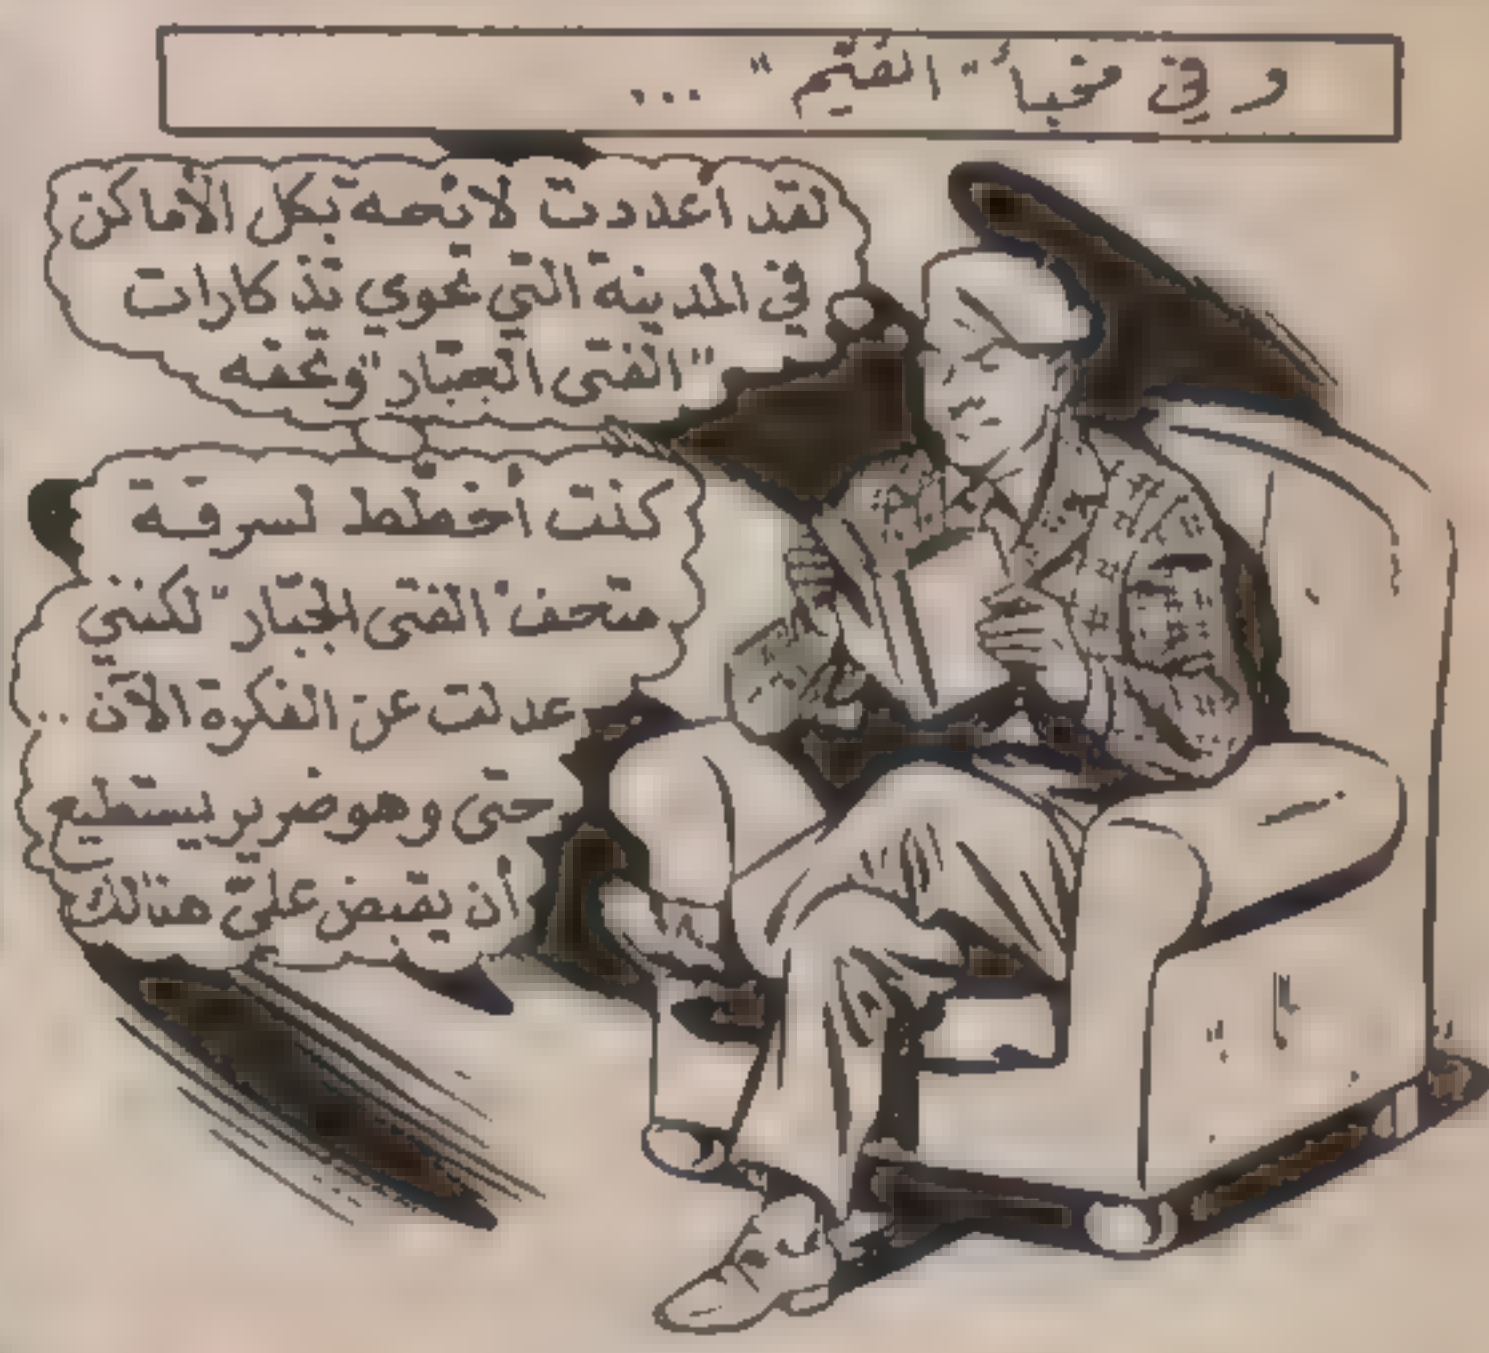 و في مخبأ "القيّم" ...
لقد اعددت لائحة بكل الأماكن
في المدينة التي تحوي تذكارات
"الفتى الجبّار" وتحفه
كنت أخطّط لسرقة
متحف "الفتى الجبّار" لكنني
عدلت عن الفكرة الآن ..
حتى وهو ضرير يستطيع
أن يقبض عليّ هنالك